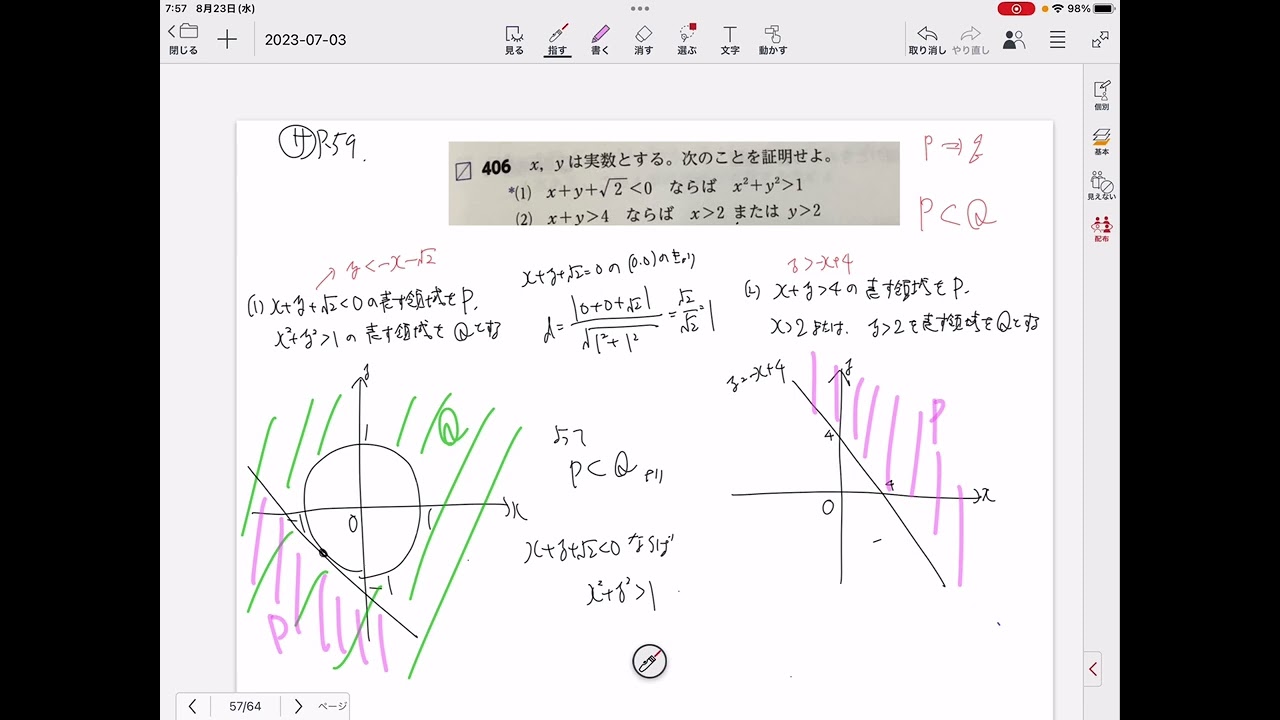 7:57 8月23日(水)
98%
閉じる
2023-07-03
見る
指す
書く
消す
選ぶ
文字
動かす
取り消し
やり直し
個別
基本
見えない
配布
4 P.59.
406 x, y は実数とする。次のことを証明せよ。
*(1) x+y+√2<0 ならば x²+y²>1
(2) x+y>4 ならば x>2 または y>2
P⇒q
P⊂Q
y<-x-√2
(1) x+y+√2<0の表す領域をP,
x²+y²>1の表す領域をQとする
x+y+√2=0の(0.0)の
d=|0+0+√2|/√1²+1²=√2/√2=1
y>-x+4
(2) x+y>4の表す領域をP,
x>2または, y>2を表す領域をQとする
y
1
Q
-1
0
1
x
-1
P
よって
P⊂Q より
x+y+√2<0 ならば
x²+y²>1
y=-x+4
y
4
P
0
4
x
57/64
ページ